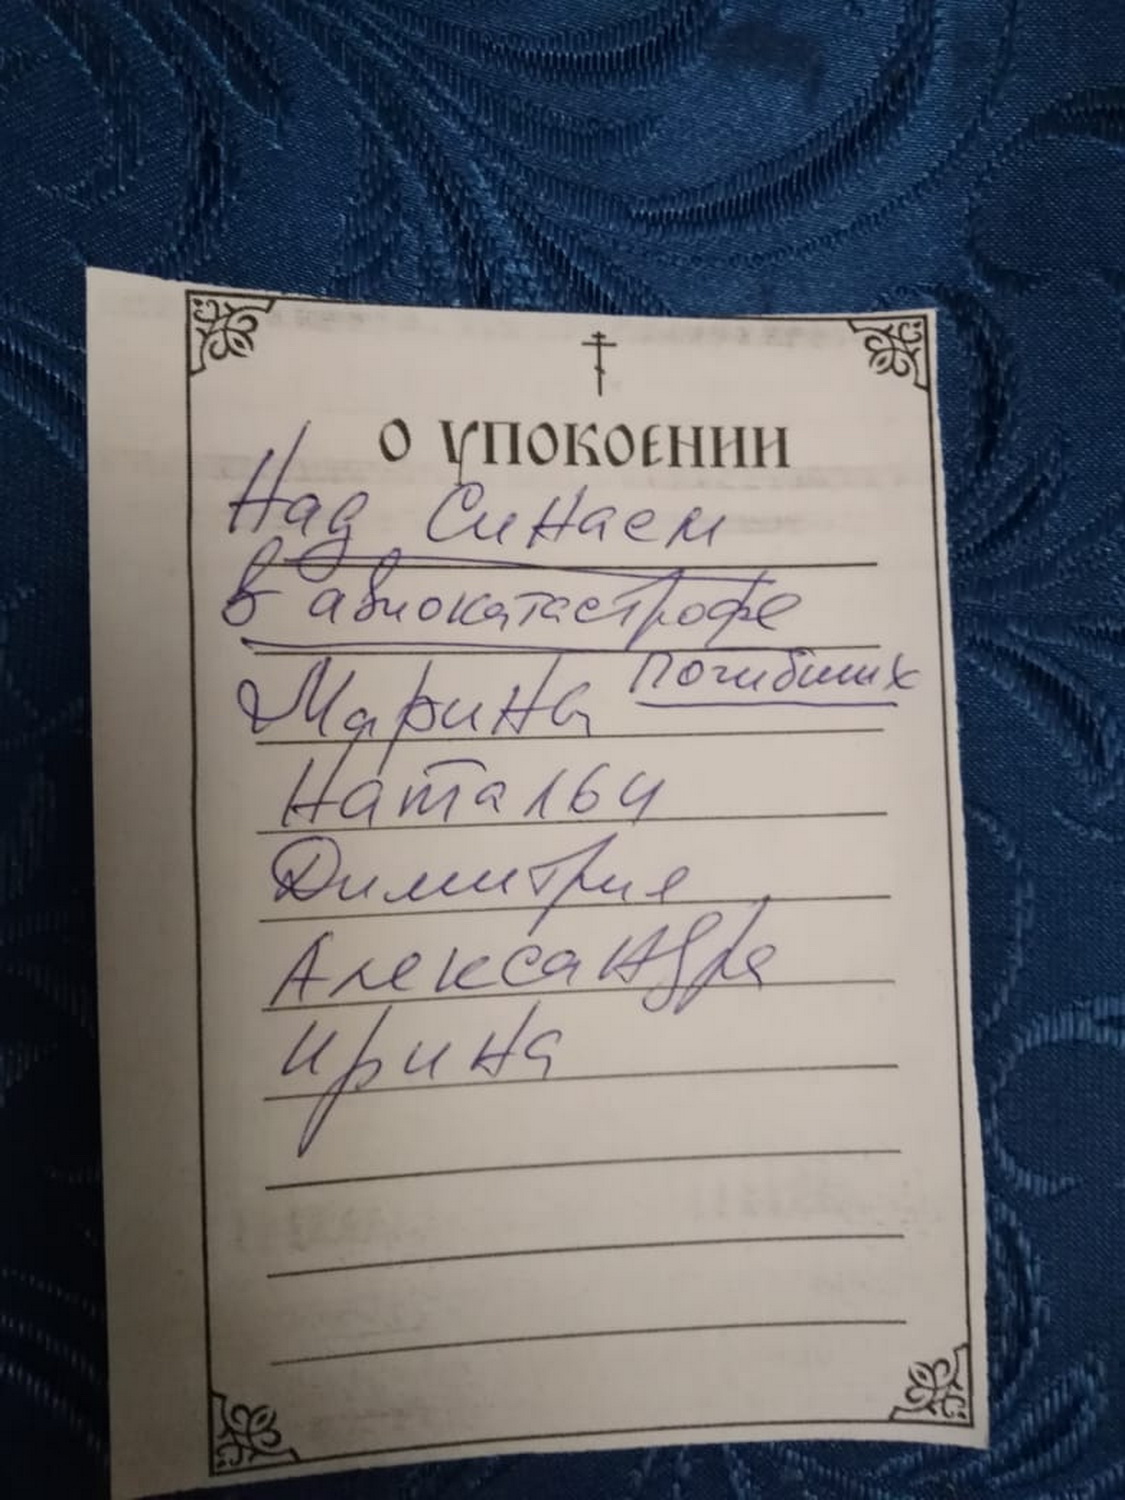 О УПОКОЕНИИ
Над Синаем
в авиокатастрофе
погибших
Марина
Натальи
Димитрия
Александра
Ирина